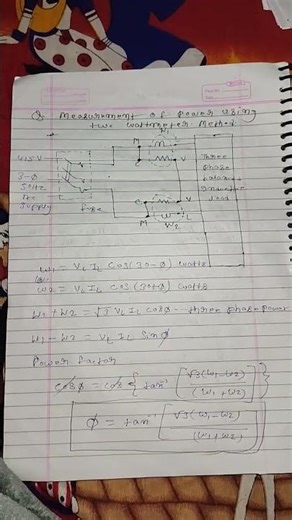 Q Measurement of power using
two wattmeter Method
W1
M L
V
415 V
3-Ø
50Hz
Supply
Fuse
Three
phase
Inductive
load
C V
M L
W2
W1 = VL IL Cos(30-Ø) watts
W2 = VL IL Cos(30+Ø) watts
W1 + W2 = √3 VL IL cosØ - three phase power
W1 - W2 = VL IL SinØ
Power factor
cosØ = cos { tan⁻¹ [ √3(W1-W2) / (W1+W2) ] }
Ø = tan⁻¹ [ √3(W1-W2) / (W1+W2) ]